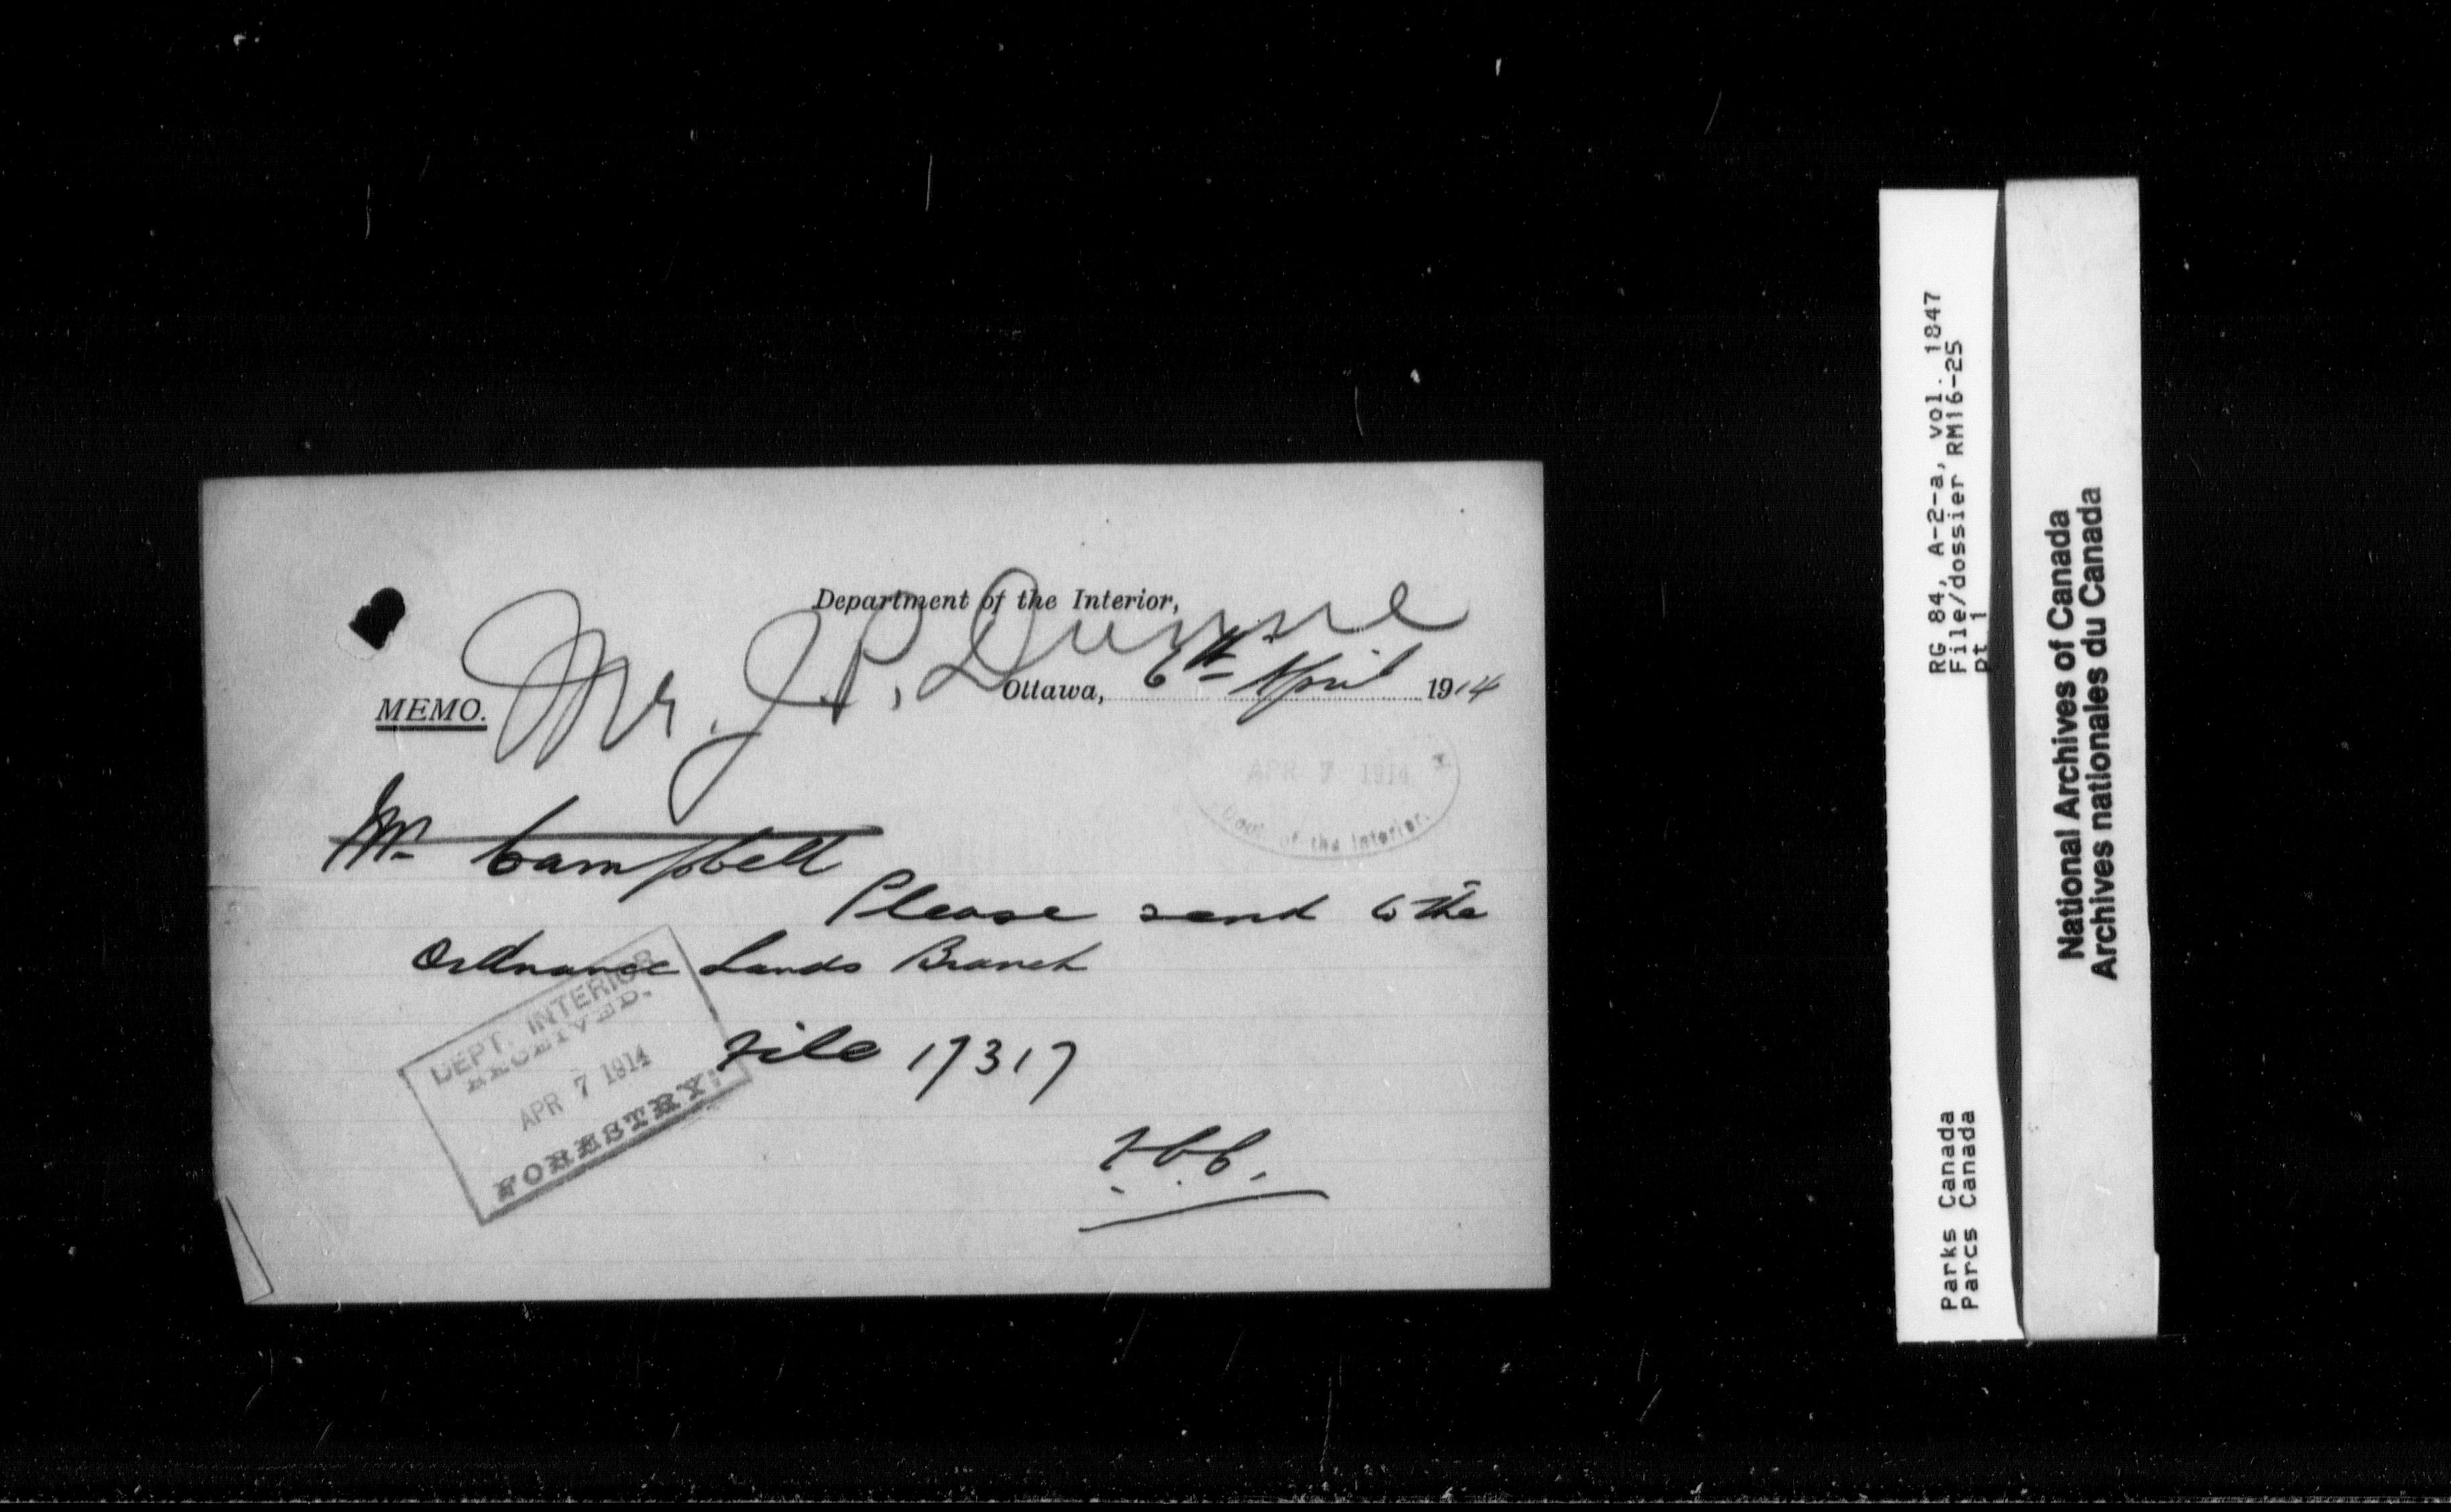 Department of the Interior,
Mr. J. P. Dunne
Ottawa, 6th April 1914
MEMO.
APR 7 1914
Dept. of the Interior.
Mr Campbell
Please send to the
Ordnance Lands Branch
DEPT. INTERIOR
RECEIVED.
APR 7 1914
FORESTRY.
File 17317
RG 84, A-2-a, vol. 1847
File/dossier RM16-25
pt 1
Parks Canada
Parcs Canada
National Archives of Canada
Archives nationales du Canada